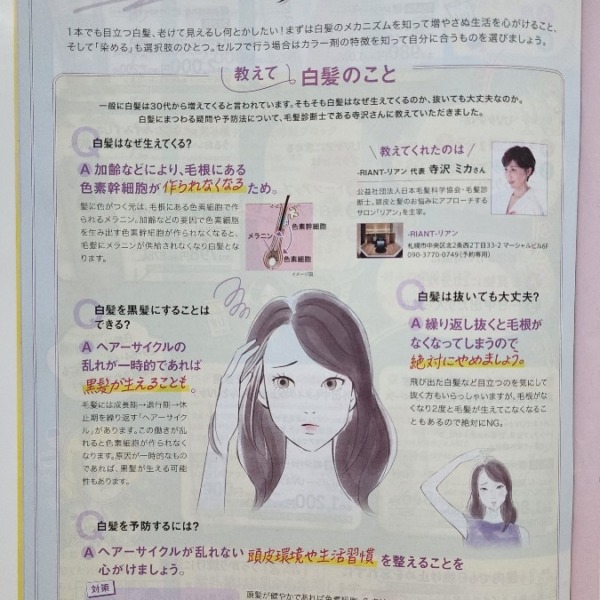 1本でも目立つ白髪、老けて見えるし何とかしたい！まずは白髪のメカニズムを知って増やさぬ生活を心がけること、
そして「染める」も選択肢のひとつ。セルフで行う場合はカラー剤の特徴を知って自分に合うものを選びましょう。
教えて 白髪のこと
一般に白髪は30代から増えてくると言われています。そもそも白髪はなぜ生えてくるのか、抜いても大丈夫なのか。
白髪にまつわる疑問や予防法について、毛髪診断士である寺沢さんに教えていただきました。
Q 白髪はなぜ生えてくる?
A 加齢などにより、毛根にある
色素幹細胞が作られなくなるため。
髪に色がつく元は、毛根にある色素細胞で作
られるメラニン。加齢などの要因で色素細胞
を生み出す色素幹細胞が作られなくなると、
毛髪にメラニンが供給されなくなり白髪とな
ります。
色素幹細胞
メラニン
色素細胞
イメージ図
教えてくれたのは
-RIANT-リアン 代表 寺沢 ミカさん
公益社団法人日本毛髪科学協会・毛髪診
断士。頭皮と髪のお悩みにアプローチする
サロン「リアン」を主宰。
-RIANT-リアン
札幌市中央区北2条西2丁目33-2 マーシャルビル6F
090-3770-0749(予約専用)
Q 白髪を黒髪にすることは
できる?
A ヘアーサイクルの
乱れが一時的であれば
黒髪が生えることも。
毛髪には成長期→退行期→休
止期を繰り返す「ヘアーサイク
ル」があります。この働きが乱
れると色素細胞が作られなくな
ります。原因が一時的なもの
であれば、黒髪が生える可能
性もあります。
Q 白髪は抜いても大丈夫?
A 繰り返し抜くと毛根が
なくなってしまうので
絶対にやめましょう。
飛び出た白髪など目立つのを気にして
抜く方もいらっしゃいますが、毛根がな
くなり2度と毛髪が生えてこなくなるこ
ともあるので絶対にNG。
Q 白髪を予防するには?
A ヘアーサイクルが乱れない頭皮環境や生活習慣を整えることを
心がけましょう。
対策